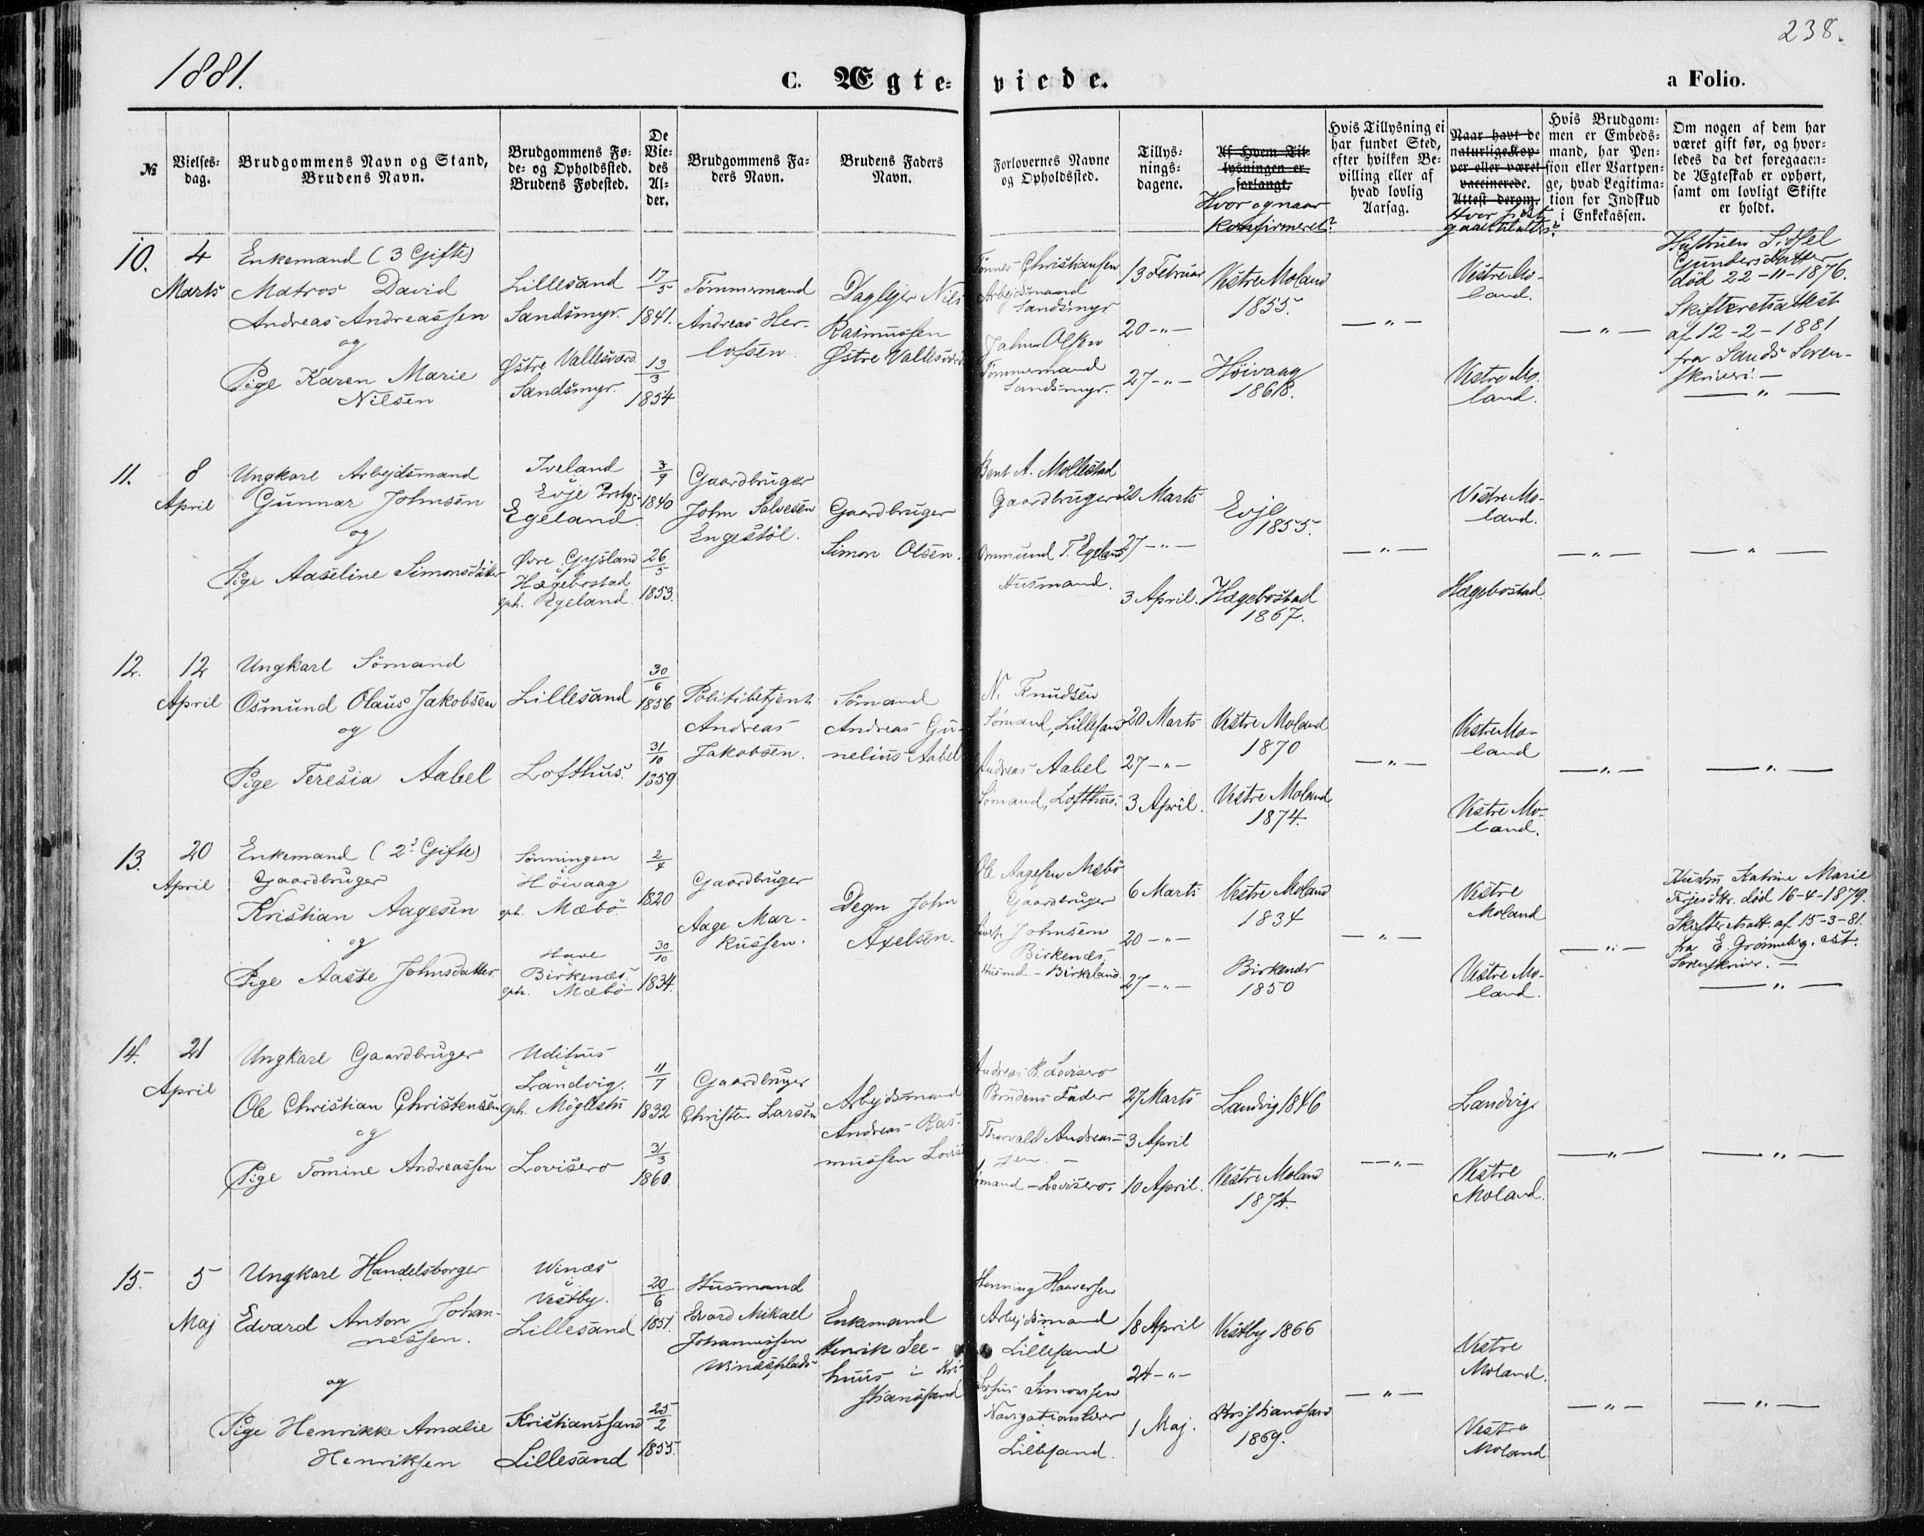 1881.
238.
C. Ægteviede.
a Folio.
№
Vielses-
dag.
Brudgommens Navn og Stand,
Brudens Navn.
Brudgommens Fø-
de- og Opholdssted.
Brudens Fødested.
De
Vie-
des
Al-
der.
Brudgommens Fa-
ders Navn.
Brudens Faders
Navn.
Forlovernes Navne
og Opholdssted.
Tillys-
nings-
dagene.
Af Hvem Til-
lysningen er
forlangt.
Hvor og naar
konfirmeret?
Hvis Tillysning ei
har fundet Sted,
efter hvilken Be-
villing eller af
hvad lovlig
Aarsag.
Naar havt de
naturlige Kop-
per eller været
vaccinerede.
Attest derom.
Hvis Brudgom-
men er Embeds-
mand, har Pen-
sion eller Vartpen-
ge, hvad Legitima-
tion for Indskud
i Enkekassen.
Om nogen af dem har
været gift før, og hvor-
ledes da det foregaaen-
de Ægteskab er ophørt,
samt om lovligt Skifte
er holdt.
10.
4
Marts
Enkemand (3 Gifte)
Matros David
Andreas Andreassen
og
Pige Karen Marie
Nilsen
Lillesand
Sandsmyr.
Østre Vallesværd
Sandsmyr.
17/5
1841.
13/3
1854
Tømmermand
Andreas Her-
lofsen.
Daglejer Nils
Rasmussen
Østre Vallesværd
Tønnes Christiansen
Arbejdsmand
Sandsmyr
Olsen
Tømmermand
Sandsmyr.
13 Februar
20 - „ -
27 - „ -
Vestre Moland
1855.
Høivaag
1868.
— „ —
Vestre Mo-
land.
Vestre Mo-
land.
— „ —
Hustruen Sissel
Gundersdatter
død 22-11-1876.
Skifteretsattest
af 12-2-1881
fra Sands Soren-
skriveri. —
— „ —
11.
8
April
Ungkarl Arbejdsmand
Gunnar Johnsen
og
Pige Aaseline Simonsdatter
Iveland
Evje Prstgj.
Egeland
Øvre Gysland
i
Hægebostad
oph. Egeland.
3/9
1840
26/5
1853.
Gaardbruger
John Salvesen
Engestøl.
Gaardbruger
Simon Olsen.
Bent A. Mollestad
Gaardbruger
Ommund T. Egeland
Husmand.
20 Marts
27 - „ -
3 April.
Evje
1855.
Hægebostad
1867.
— „ —
Vestre Mo-
land.
Hægebostad.
— „ —
— „ —
12.
12
April
Ungkarl Sømand
Osmund Olaus Jakobsen
og
Pige Teresia Aabel
Lillesand
Lofthus.
30/6
1856
31/10
1859
Politibetjent
Andreas
Jakobsen.
Sømand
Andreas Gu-
nelius Aabel
N. Knudsen
Sømand, Lillesand
Andreas Aabel
Sømand, Lofthus.
20 Marts
27 - „ -
3 April.
Vestre Moland
1870
Vestre Moland
1874.
— „ —
Vestre Mo-
land
Vestre Mo-
land.
— „ —
— „ —
13.
20
April
Enkemand (2den Gifte)
Gaardbruger
Kristian Aagesen
og
Pige Aaste Johnsdatter
Sønningen
i
Høivaag
oph. Mæbø
Have
i
Birkenæs.
oph. Mæbø
2/4
1820
30/10
1834.
Gaardbruger
Aage Mar-
kussen.
Degn John
Axelsen.
Ole Aagesen Mæbø
Gaardbruger
Johnsen
Birkenæs.
Husmd - Birkeland
6 Marts
20 - „ -
27 - „ -
Vestre Moland
1834
Birkenæs
1850
— „ —
Vestre
Moland
Vestre Mo-
land.
— „ —
Hustru Katrine Marie
død 16-4-1879.
Skifteretsatt af 15-3-81.
fra E. Grønneberg, est.
Sorenskriver. —
— „ —
14.
21
April
Ungkarl Gaardbruger
Ole Christian Christensen
og
Pige Tomine Andreassen
i
Landvig.
oph. Møglestu
Lovisero
11/7
1832
31/3
1860
Gaardbruger
Christen Larsen
Arbejdsmand
Andreas Ras-
mussen
Andreas R. Lovisero
Brudens Fader
Thorvald Andreas-
sen. —
Sømand - Lovisero.
27 Marts
3 April
10 April.
Landvig 1846
Vestre Moland
1874.
— „ —
Landvig
Vestre
Moland.
— „ —
— „ —
15.
5
Maj
Ungkarl Handelsborger
Edvard Anton Johan-
nessen.
og
Pige Henrikke Amalie
Henriksen
Winæs
i
Vestby.
Lillesand
Kristianssand
Lillesand
20/6
1851.
25/2
1855.
Husmand
Edvard Mikael
Johannessen
Winæsplads
Enkemand
Henrik See-
huus i Kri-
stianssand
Henning Haaversen
Arbejdsmand
i
Lillesand
Simonsen
Navigationslærer
Lillesand.
18 April
24 - „ -
1 Maj.
Vestby 1866
Kristianssand
1869.
— „ —
Vestre
Moland.
Vestre
Moland
— „ —
— „ —